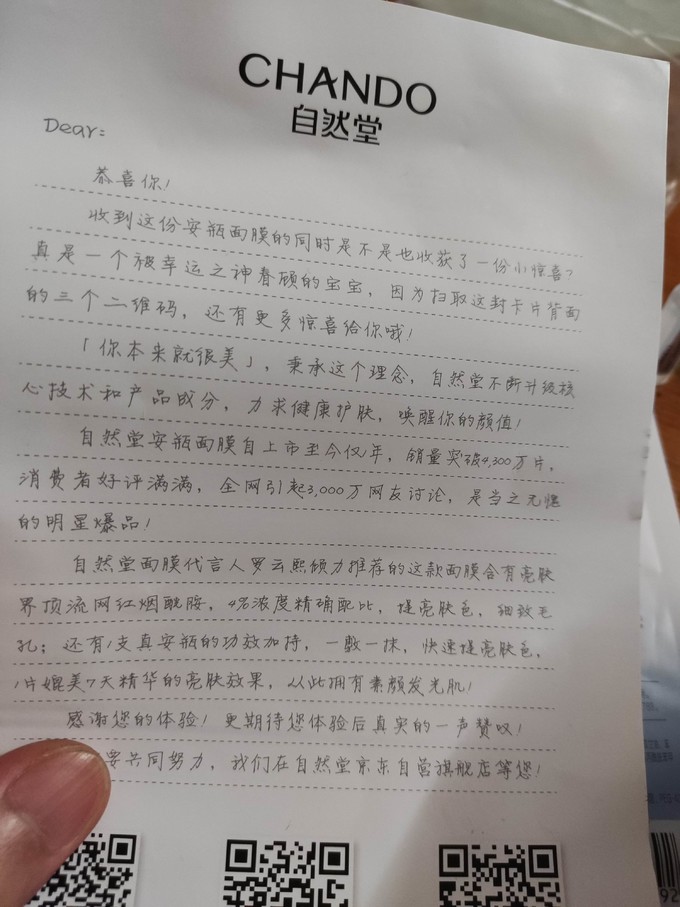 CHANDO
自然堂
Dear:
恭喜你!
收到这份安瓶面膜的同时是不是也收获了一份小惊喜?
真是一个被幸运之神眷顾的宝宝，因为扫取这封卡片背面
的三个二维码，还有更多惊喜给你哦!
「你本来就很美」，秉承这个理念，自然堂不断升级核
心技术和产品成分，力求健康护肤，唤醒你的颜值!
自然堂安瓶面膜自上市至今仅1年，销量突破4,300万片，
消费者好评满满，全网引起3,000万网友讨论，是当之无愧
的明星爆品!
自然堂面膜代言人罗云熙倾力推荐的这款面膜含有亮肤
界顶流网红烟酰胺，4%浓度精确配比，提亮肤色，细致毛
孔；还有1支真安瓶的功效加持，一敷一抹，快速提亮肤色，
1片媲美7天精华的亮肤效果，从此拥有素颜发光肌!
感谢您的体验! 更期待您体验后真实的一声赞叹!
要共同努力，我们在自然堂京东自营旗舰店等您!
92